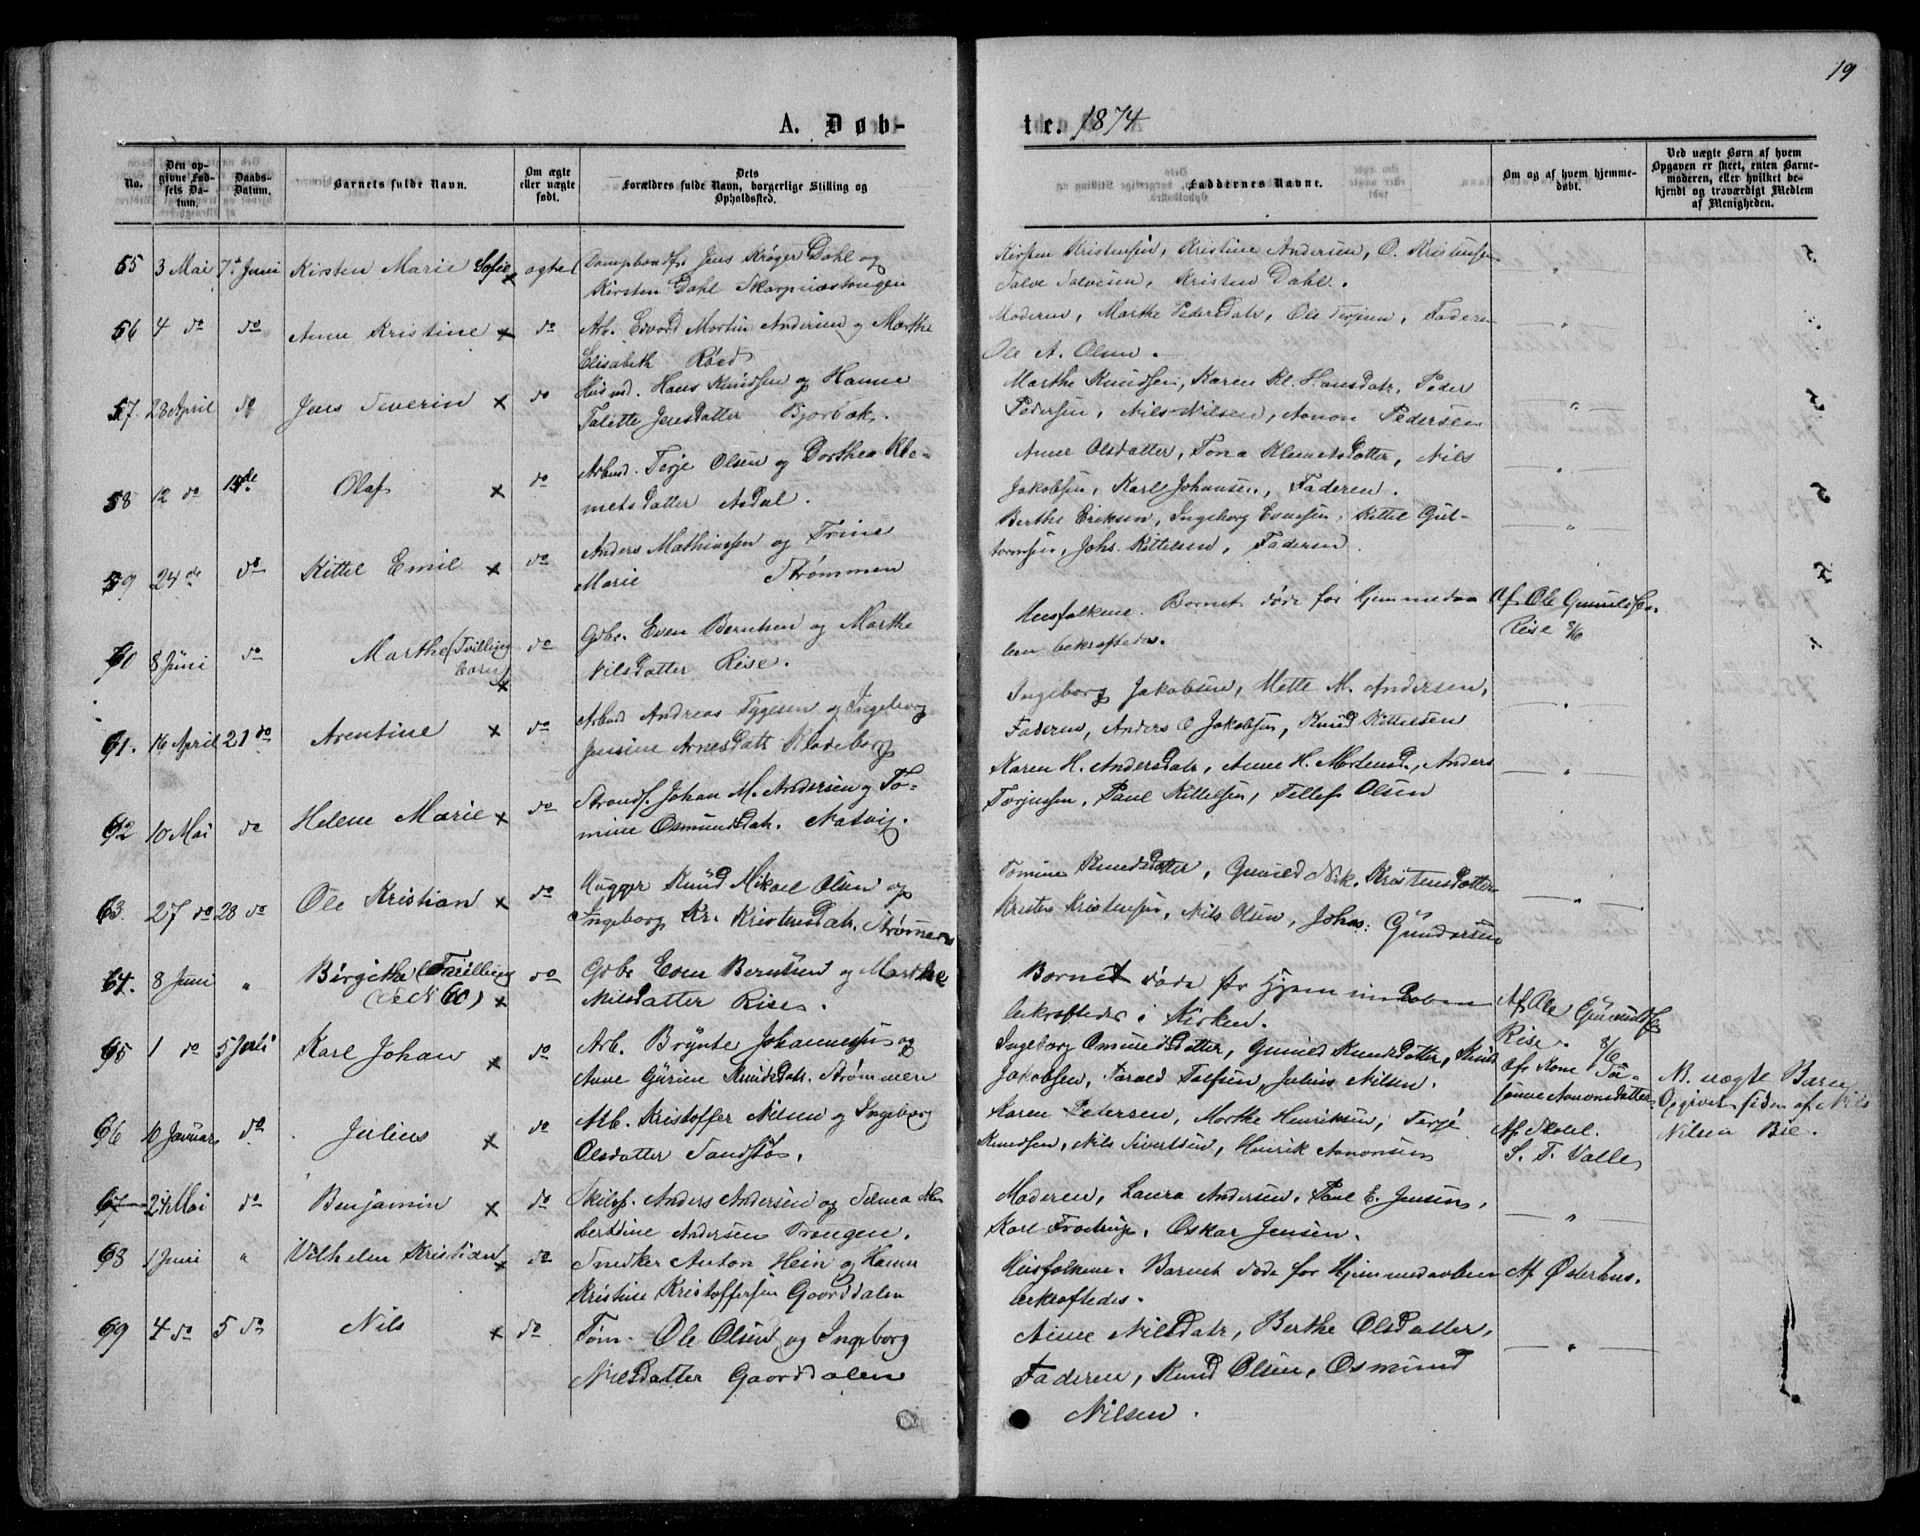 19
A. Døb-
te. 1874
No.
Den op-
givne Fød-
sels Da-
tum.
Daabs-
Datum.
Barnets fulde Navn.
Om ægte
eller uægte
født.
Dets
Forældres fulde Navn, borgerlige Stilling og
Opholdssted.
Faddernes Navne.
Om og af hvem hjemme-
døbt.
Ved uægte Børn af hvem
Opgaven er skeet, enten Barne-
moderen, eller hvilket be-
kjendt og troværdigt Medlem
af Menigheden.
55 3 Mai 7de Juni Kirsten Marie Sofie x ægte Jens Krøger Dahl og
Kirsten Dahl
Kirsten Kristensen, Kristine Andersen, O. Kristensen
Salve Salvesen, Kristen Dahl.
56 4 do do Anne Kristine x do Arb. Edvard Martin Andersen og Marthe
Elisabeth Røed
Moderen, Marthe Pedersdatr, Ole Terjesen, Faderen
Ole A. Olsen.
57 28 April do Jens Severin x do Husmd. Hans Knudsen og Hanne
Talette Jensdatter Bjorbæk.
Marthe Knudsen, Karen Kl. Hansdatr, Peder
Pedersen, Nils Nilsen, Aanon Pedersen
58 12 do 14de Olaf x do Arbmd. Terje Olsen og Dorthea Kle-
metsdatter Asdal.
Anne Olsdatter, Tona Klemetsdatter, Nils
Jakobsen, Karl Johansen, Faderen.
59 24 do do Kittel Emil x do Anders Mathiassen og Trine
Marie Strømmen
Berthe Eriksen, Ingeborg Evensen, Kittel Gut-
tormsen, Johs. Kittelsen, Faderen.
60 8 Juni do Marthe (Tvilling
barn) x do Gdbr. Even Berntsen og Marthe
Nilsdatter Rise.
Husfolkene. Barnet døde før Hjemmedaa
ben bekræftedes.
Af Ole Gunuldsen
Rise 8/6
61. 16 April 21 do Arentine x do Arbmd Andreas Tygesen og Ingeborg
Jensine Arnesdatr Klodeborg
Ingeborg Jakobsen, Mette M. Andersen,
Faderen, Anders O Jakobsen, Knud Kittelsen
62 10 Mai do Helene Marie x do Strands. Johan M. Andersen og To-
mine Osmundsdatr. Natvig.
Karen H. Andersdatr, Anne H. Mortensd., Anders
Torjussen, Paul Kittelsen, Tellef Olsen
63 27 do 28 do Ole Kristian x do Hugger Knud Mikael Olsen og
Ingeborg Kr. Kristensdatr. Strømmen
Tomine Knudsdatter, Gunild Nik. Kristensdatter
Kristen Kristensen, Nils Olsen, Johas: Gundersen
64. 8 Juni " Birgithe (Tvilling
(se N 60) x do Gdbr Even Berntsen og Marthe
Nilsdatter Rise.
Barnet døde før Hjemmedaaben
bekræftedes i Kirken.
Af Ole Gunuldsen
Rise. 8/6
65 1 do 5 Juli Karl Johan x do Arb. Brynte Johannessen og
Anne Gurine Knudsdatr. Strømmen
Ingeborg Osmundsdatter, Gunild Knudsdatter, Knud
Jakobsen, Tarald Talfsen, Julius Nilsen.
Af Kone
Aanonsdatter
66 10 Januar do Julius x do Arb. Kristoffer Nilsen og Ingeborg
Olsdatter Sandstø.
Karen Pedersen, Marthe Henriksen, Terje
Knudsen, Nils Sivertsen, Henrik Aanonsen
Af Skolel.
S. T. Valle
N. uægte Barn
Opgivet siden af Nils
Nilsen Bie.
67 24 Mai do Benjamin x do Skibsf. Anders Andersen og Selma Al-
bertine Andersen Vrængen.
Moderen, Laura Andersen, Paul E. Jensen,
Karl Frostrup, Oskar Jensen.
68 1 Juni " Vilhelm Kristian x do Snedker Anton Hein og Hanne
Kristine Kristoffersen Gaarddalen
Husfolkene. Barnet døde før Hjemmedaaben
bekræftedes.
Af Østerhus.
69 4 do 5 do Nils x do Tøm. Ole Olsen og Ingeborg
Nilsdatter Gaarddalen
Anne Nilsdatr, Berthe Olsdatter,
Faderen, Knud Olsen, Osmund
Nilsen.